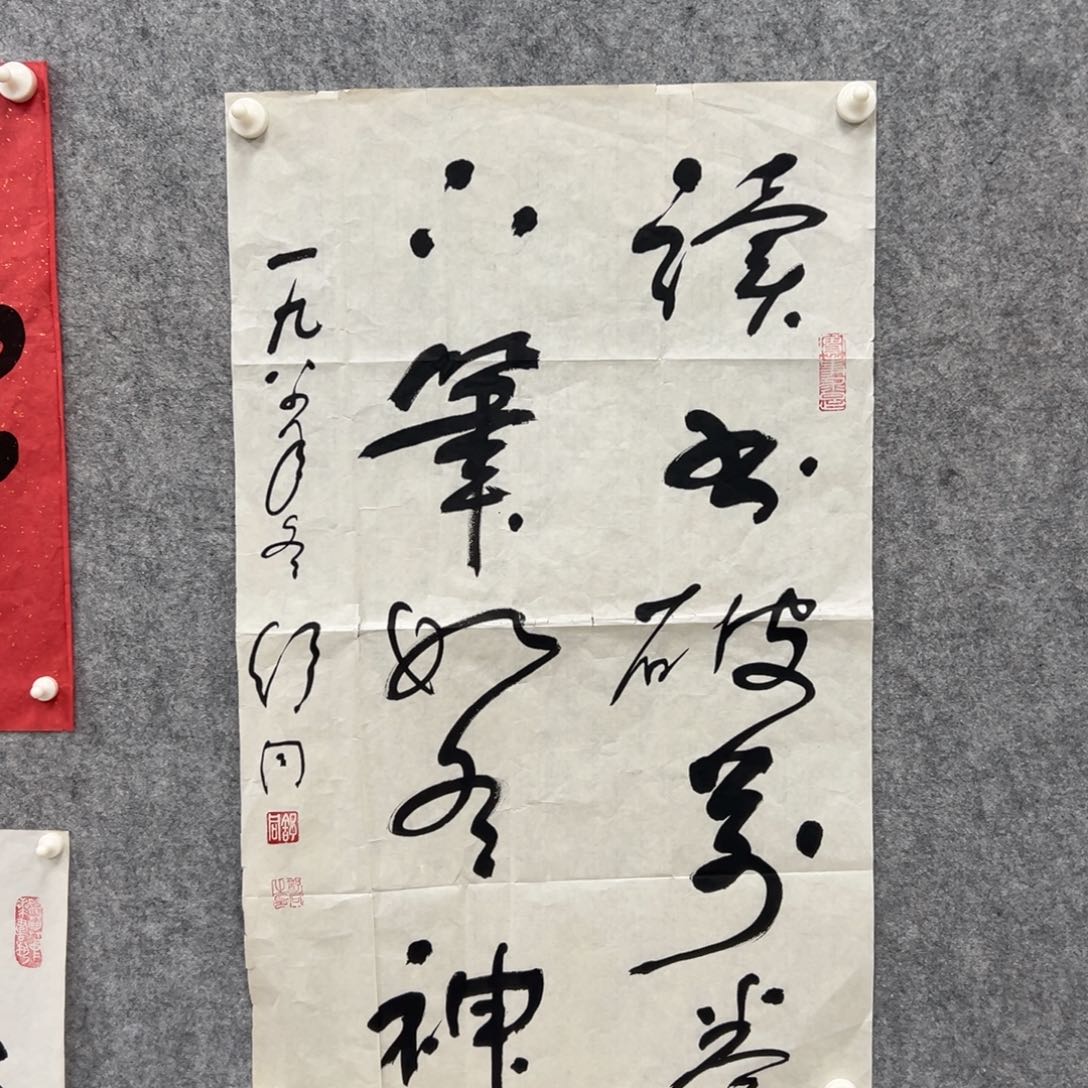 讀书破萬卷
下筆如有神
一九八八年冬 舒同
舒同